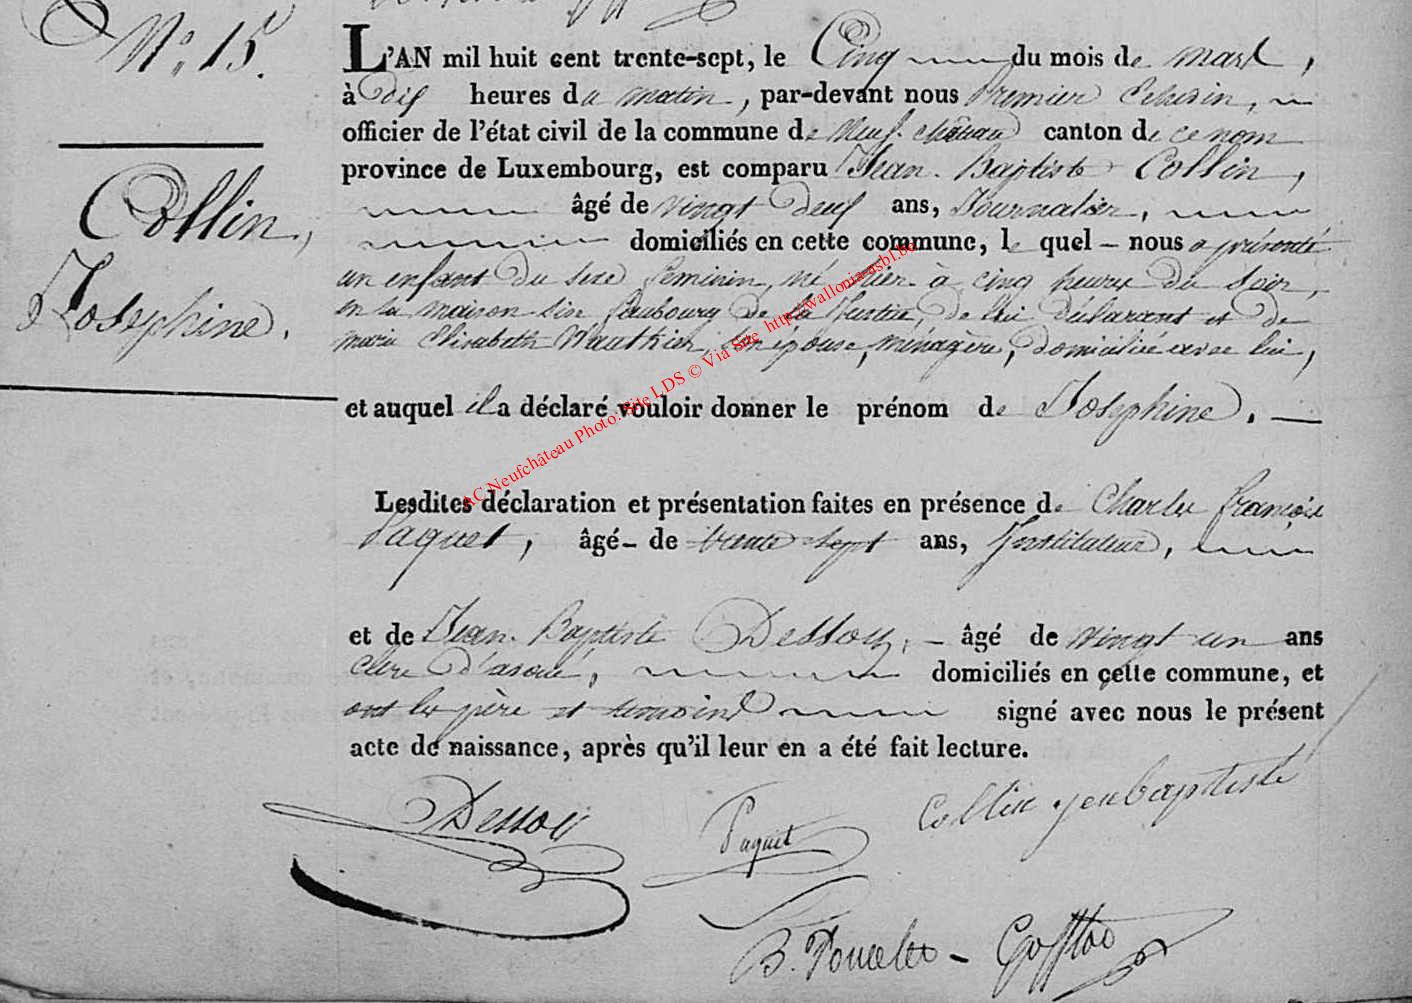 N.° 15.
Collin,
Josephine.
L'AN mil huit cent trente-sept, le Cinq du mois de mars,
à dix heures du matin, par-devant nous Premier Echevin,
officier de l'état civil de la commune de Neuf-château canton de ce nom
province de Luxembourg, est comparu Jean-Baptiste Collin,
âgé de vingt deux ans, Journalier,
domiciliés en cette commune, le quel – nous a présenté
un enfant du sexe féminin, né hier à cinq heures du soir,
en la maison sise faubourg de la Justice, de lui déclarant et de
marie Elisabeth son épouse, ménagère, domiciliée avec lui,
et auquel il a déclaré vouloir donner le prénom de Josephine.
Lesdites déclaration et présentation faites en présence de Charles françois
Paquet, âgé – de trente sept ans, Instituteur,
et de Jean-Baptiste Dessoy, – âgé de vingt un ans
clerc d'avoué, domiciliés en cette commune, et
ont les père et témoins signé avec nous le présent
acte de naissance, après qu'il leur en a été fait lecture.
Dessoy
Paquet
Collin jenbaptiste
B. Poncelet –
AC Neufchâteau Photo: Site LDS © Via Site http://wallonia-asbl.be